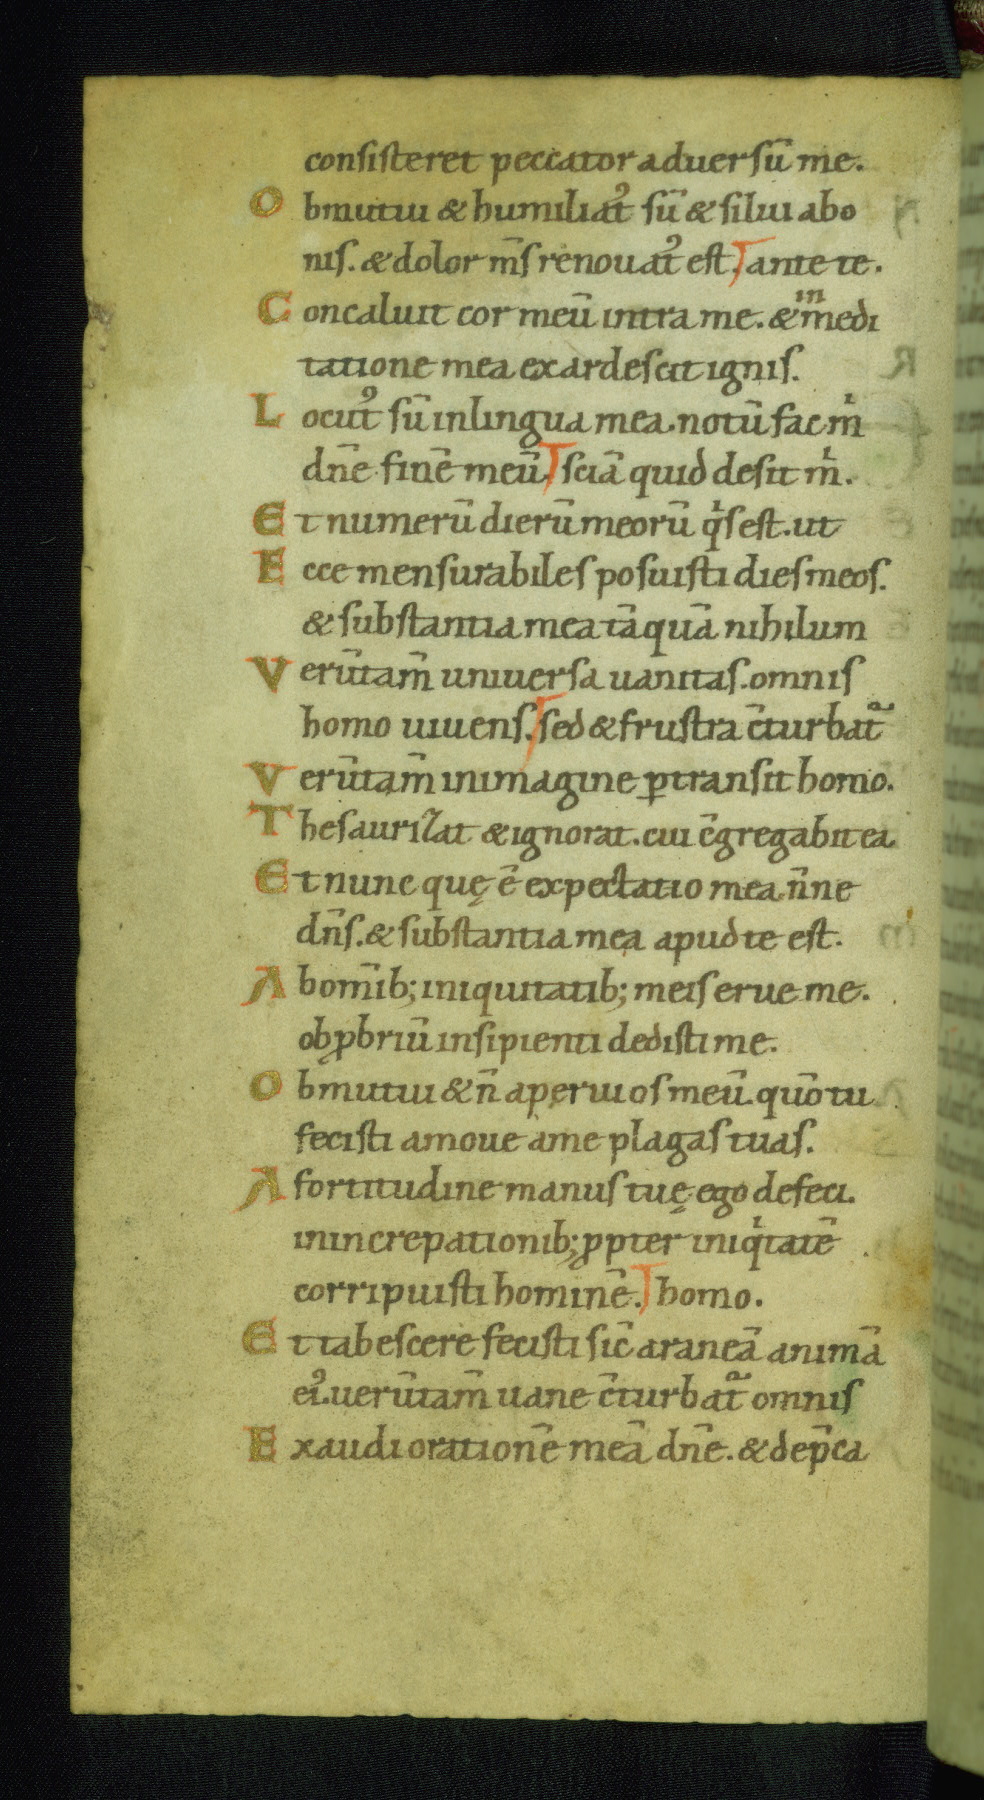 consisteret peccator aduersū me.
Obmutui & humiliat᾽ sū & silui abo
nis. & dolor m̄s renouat᾽ est. ante te.
Concaluit cor meū intra me. & in medi
tatione mea exardescit ignis.
Locut᾽ sū in lingua mea. notū fac m̍
dn̄e finē meū. sciā quid desit m̍.
Et numerū dierū meorū q̍s est. ut
Ecce mensurabiles posuisti dies meos.
& substantia mea tāquā nihilum
Verūtam̄ uniuersa uanitas. omnis
homo uiuens. sed & frustra c̄turbat᷑
Verūtam̄ in imagine ꝑtransit homo.
Thesaurizat & ignorat. cui c̄gregabit ea
Et nunc quę ē expectatio mea n̄ne
dn̄s. & substantia mea apud te est.
Ab om̄ib; iniquitatib; meis erue me.
obꝓbriū insipienti dedisti me.
Obmutui & n̄ aperui os meū. quō tu
fecisti amoue a me plagas tuas.
A fortitudine manus tuę ego defeci.
in increpationib; ꝓpter iniq̍tatē
corripuisti hominē. homo.
Et tabescere fecisti sic̄ araneā animā
ei᾽. uerūtam̄ uane c̄turbat᷑ omnis
Exaudi orationē meā dn̄e. & dep̄ca